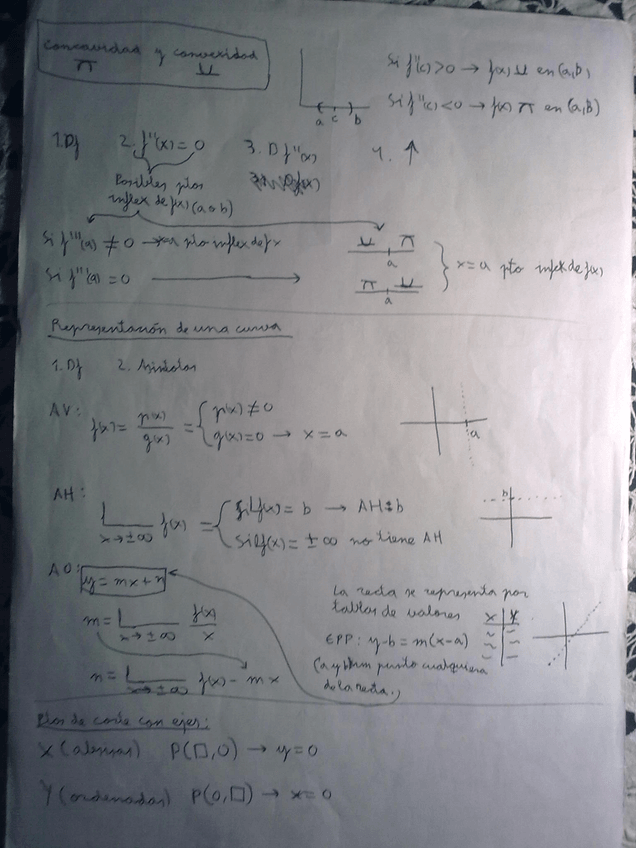 Concavidad y convexidad
Si f''(c)>0 → f(x) ∪ en (a,b)
Si f''(c)<0 → f(x) ∩ en (a,b)
a c b
1. Df 2. f''(x)=0 3. D f''(x) 4. ↑
Posibles ptos
inflex de f(x) (a o b)
Si f'''(a) ≠ 0 → x=a pto inflex de fx
∪ ∩
a
Si f'''(a) = 0 →
∩ ∪
a
x=a pto inflex de f(x)
Representación de una curva
1. Df 2. Asíntotas
AV: f(x) = p(x)/q(x) = { p(x) ≠ 0
q(x)=0 → x=a
a
AH: L x→±∞ f(x) = { si Lf(x) = b → AH: b
si Lf(x) = ±∞ no tiene AH
b
AO: y = mx+n
m = L x→±∞ f(x)/x
n = L x→±∞ f(x) - mx
La recta se representa por
tablas de valores
x y
EPP: y-b = m(x-a)
(a y b un punto cualquiera
de la recta.)
Ptos de corte con ejes:
X (abscisas) P(□,0) → y=0
Y (ordenadas) P(0,□) → x=0